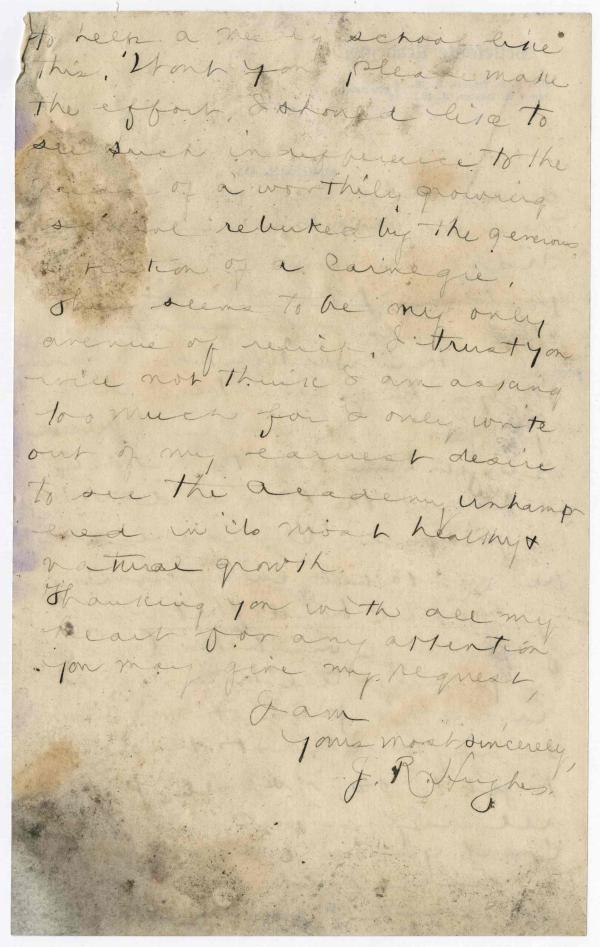 to help a needy school like
this. Wont you please make
the effort. I should like to
see such indifference to the
of a worthily growing
rebuked by the generous
of a Carnegie.
This seems to be my only
avenue of relief. I trust you
will not think I am asking
too much for I only write
out of my earnest desire
to see the Academy unhamp
ered in its most healthy &
natural growth.
Thanking you with all my
heart for any attention
you may give my request,
I am
Yours most sincerely,
J. R. Hughes.